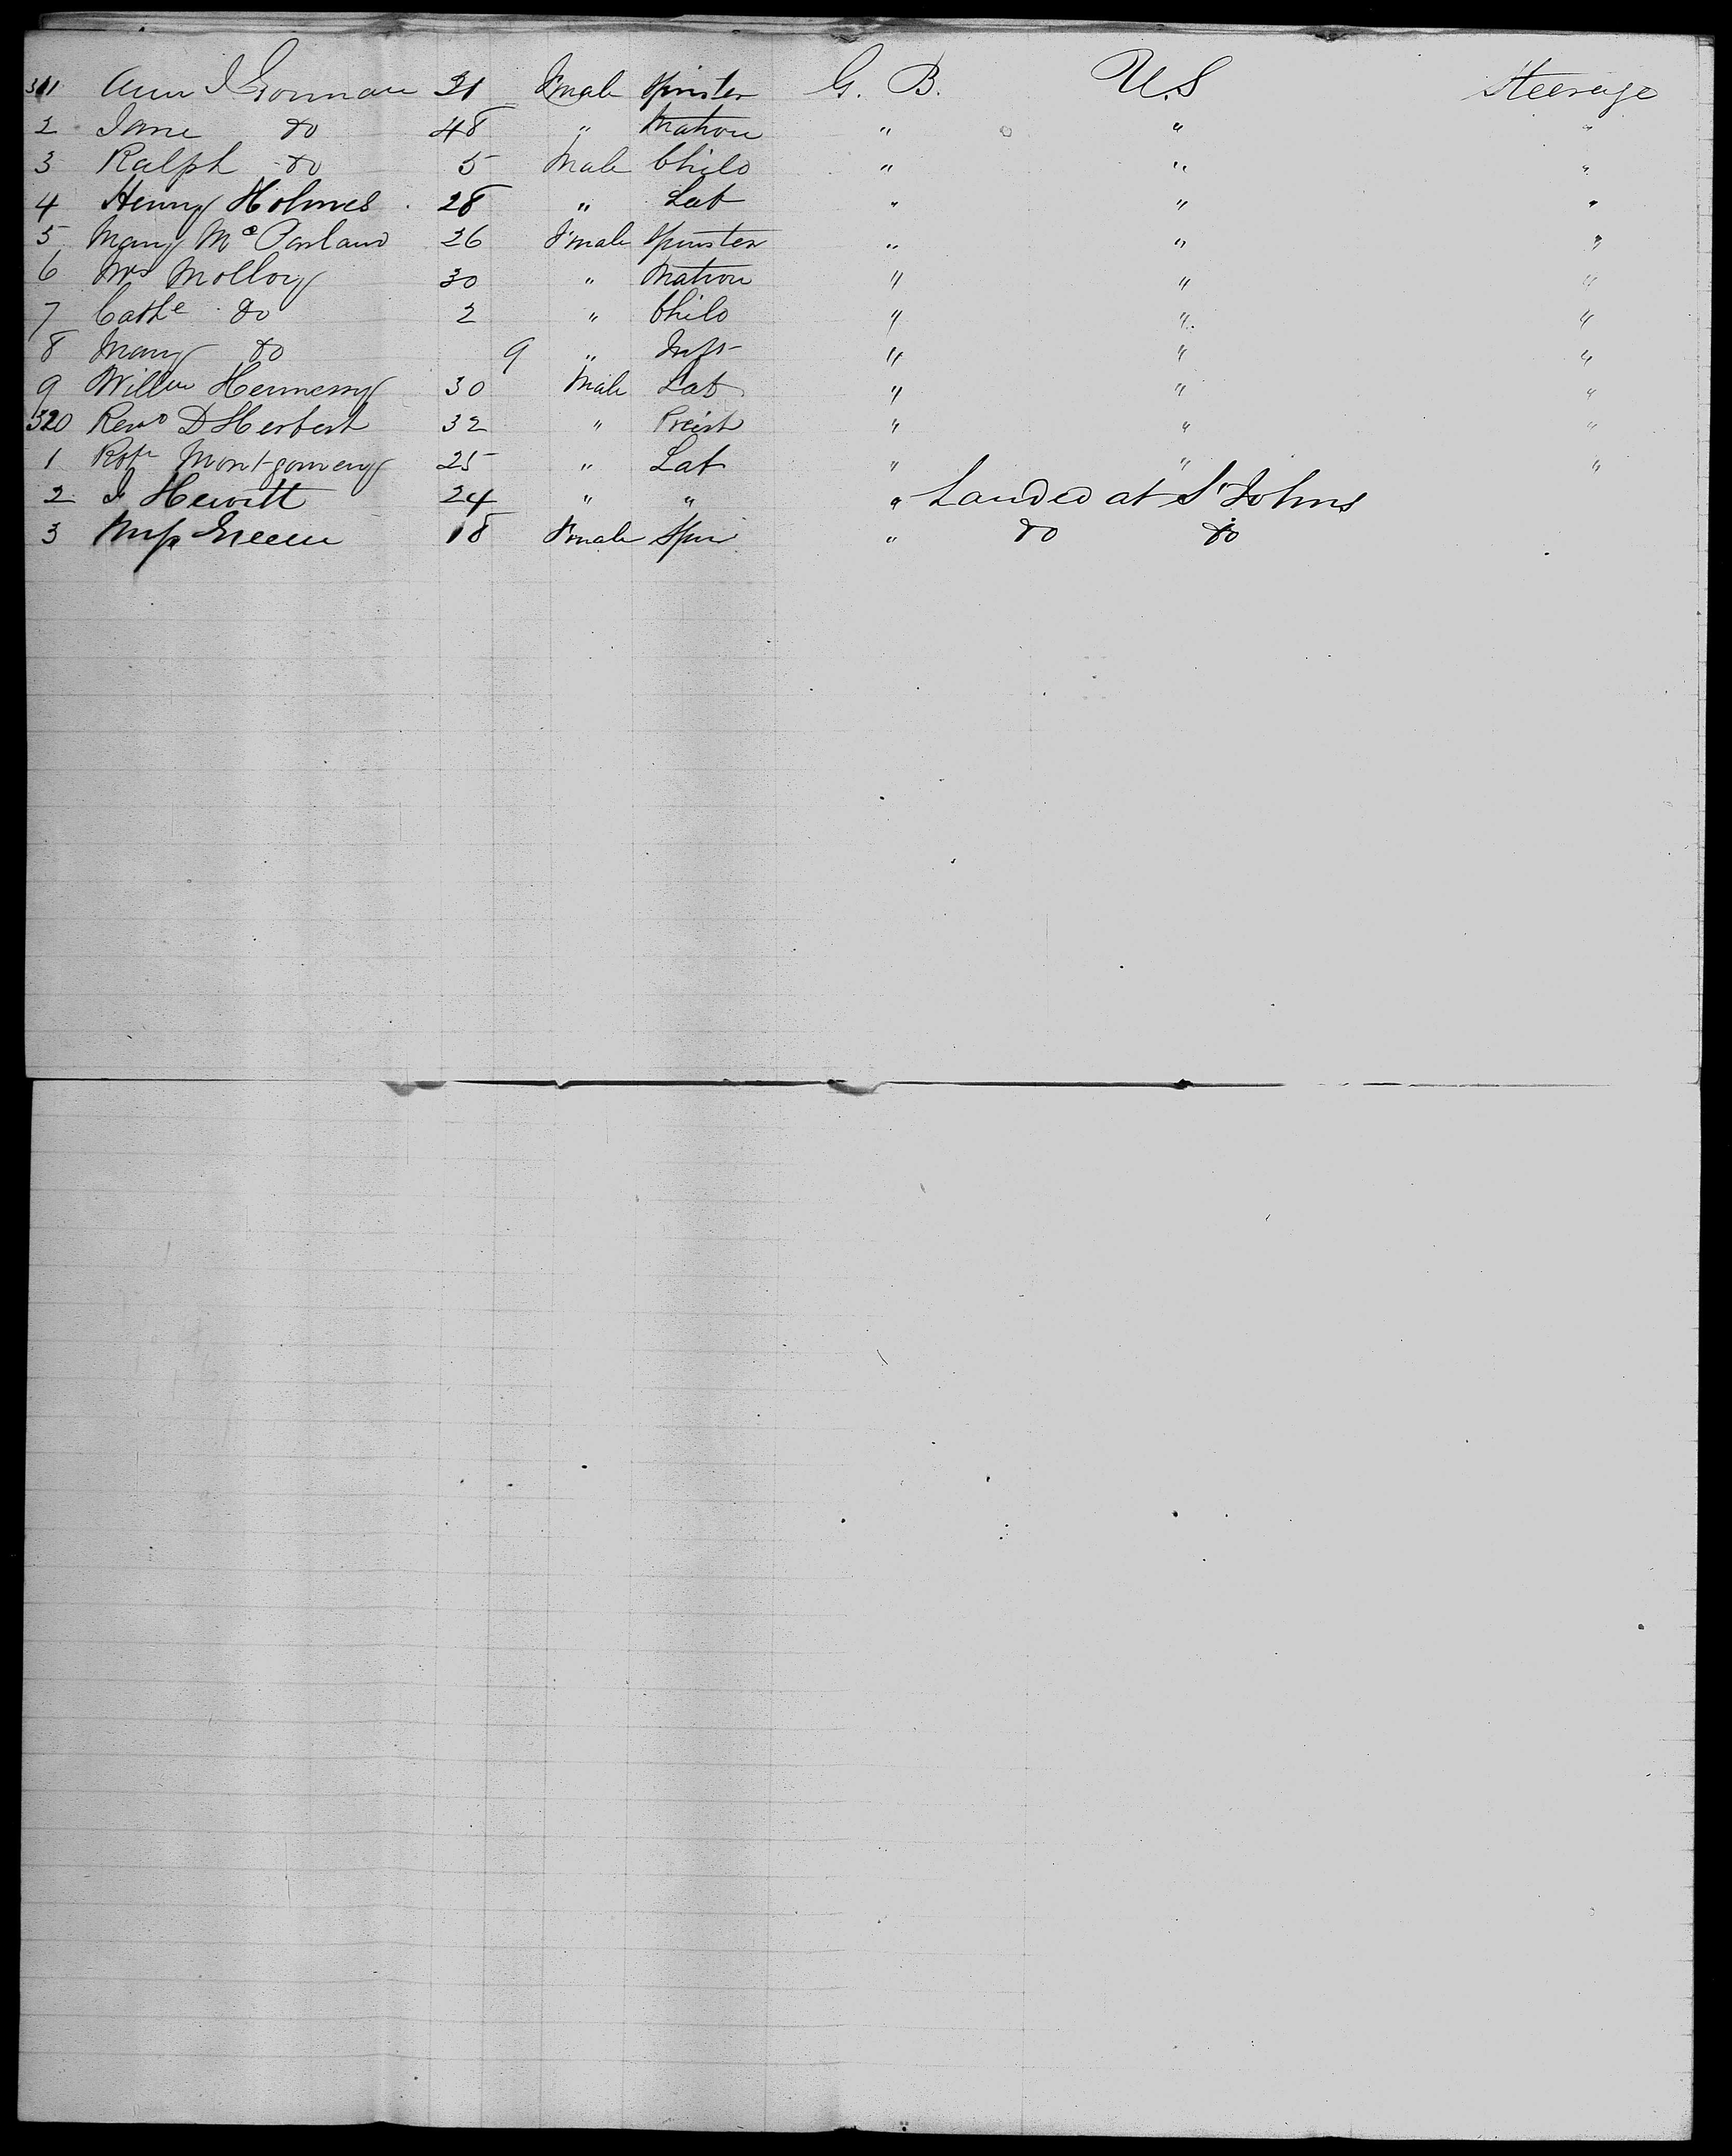 311 Ann J Gorman 21 Female Spinster G. B. U.S Steerage
2 Jane do 48 " Matron " " "
3 Ralph do 5 Male Child " " "
4 Henry Holmes 28 " Lab " " "
5 Mary Mc Parland 26 Female Spinster " " "
6 Mrs Molloy 30 " Matron " " "
7 Cathe do 2 " Child " " "
8 Mary do 9 " Inft " " "
9 Willm Hennessy 30 Male Lab " " "
320 Revd D Herbert 32 " Preist " " "
1 Robt Montgomery 25 " Lab " " "
2 J Hewitt 24 " " " Landed at St Johns
3 Miss Green 18 Female Spin " do do